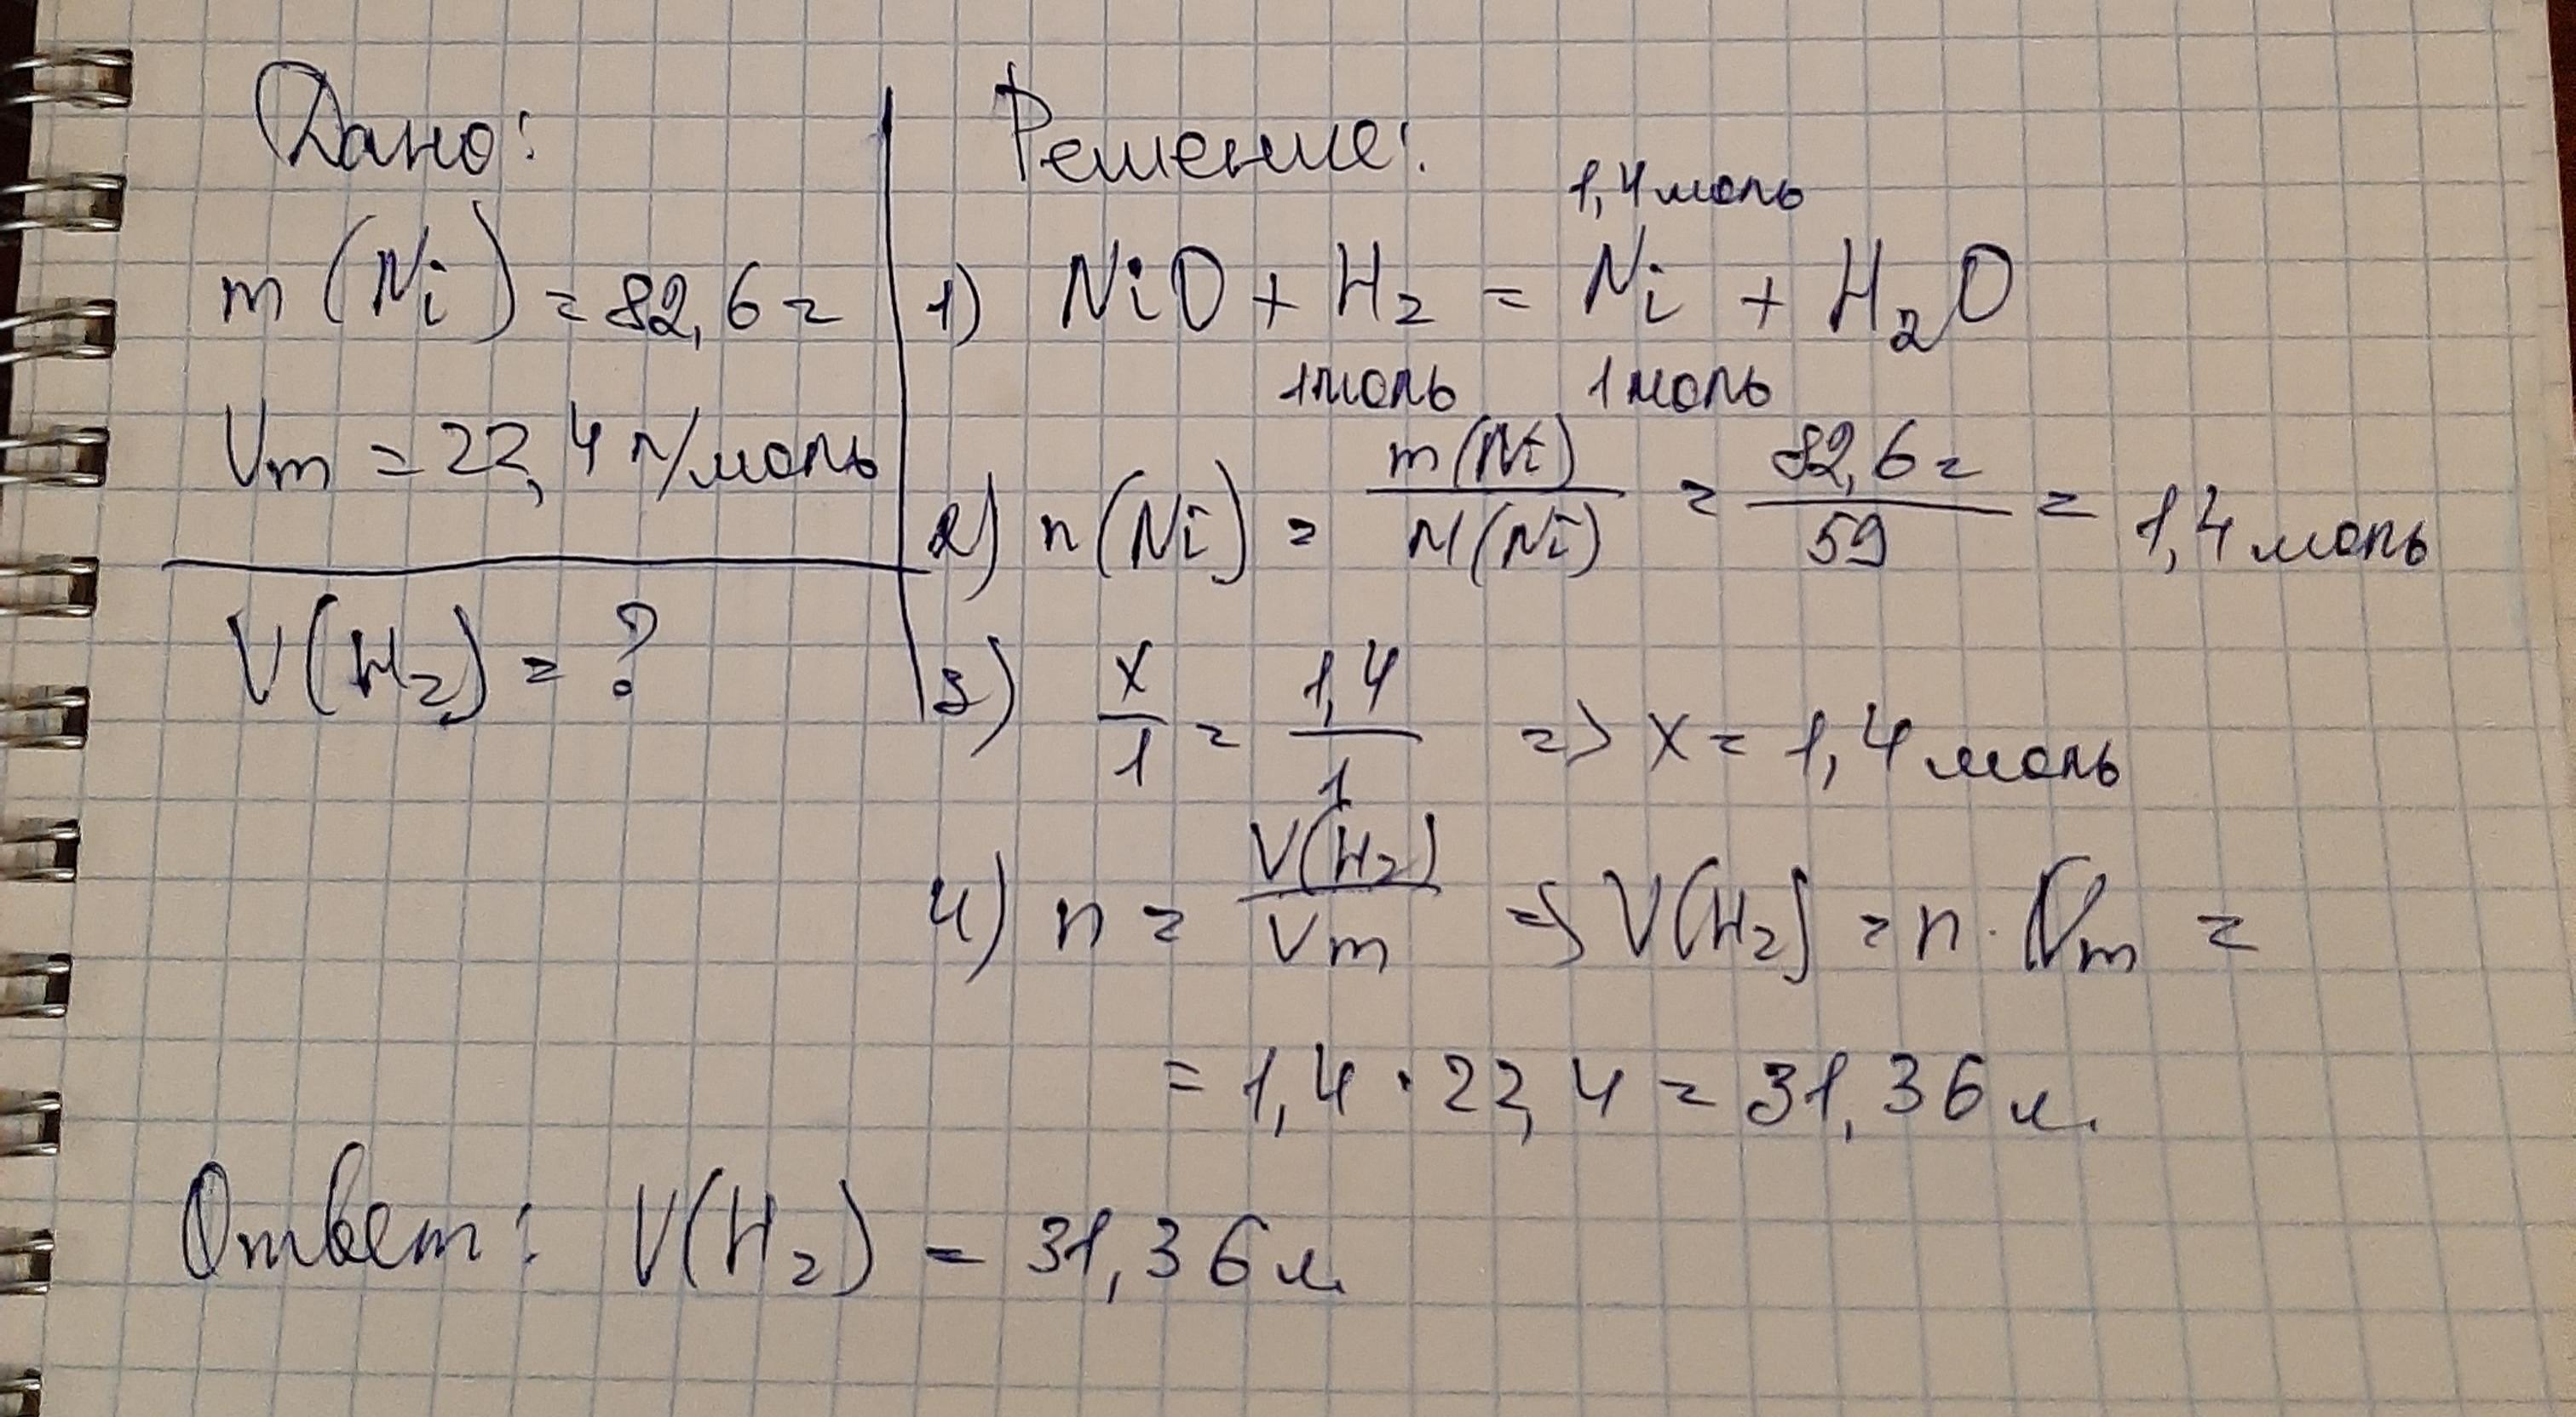 Дано:
m (Ni) = 82,6 г
Vm = 22,4 л/моль
V(H₂) = ?
Решение:
1,4 моль
1) NiO + H₂ = Ni + H₂O
1 моль 1 моль
2) n(Ni) = m(Ni)/M(Ni) = 82,6 г/59 = 1,4 моль
3) x/1 = 1,4/1 => x = 1,4 моль
4) n = V(H₂)/Vm => V(H₂) = n · Vm =
= 1,4 · 22,4 = 31,36 л.
Ответ: V(H₂) = 31,36 л.